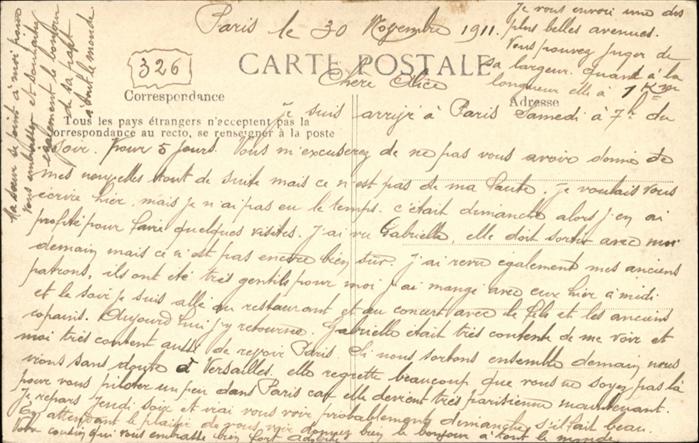 Paris le 30 Novembre 1911.
Je vous envoi une des
plus belles avenues.
Vous pouvez juger de
sa largeur. quant à la
longueur elle à 1
326
CARTE POSTALE
Correspondance
Adresse
Tous les pays étrangers n'acceptent pas la
correspondance au recto, se renseigner à la poste
Chère Alice
Je suis arrivé à Paris Samedi à 7h du
soir. Pour 5 jours. Vous m'excuserez de ne pas vous avoir donné de
mes nouvelles tout de suite mais ce n'est pas de ma faute. Je voulais vous
écrire hier mais je n'ai pas eu le temps. c'était dimanche alors j'en ai
profité pour faire quelques visites. J'ai vu Gabrielle, elle doit sortir avec moi
demain mais ce n'est pas encore bien sûr. J'ai revu également mes anciens
patrons, ils ont été très gentils pour moi j'ai mangé avec eux hier à midi
et le soir je suis allé au restaurant et au concert avec le et les anciens
copains. Aujourd'hui j'y retourne. Gabrielle était très contente de me voir et
moi très content aussi de revoir Paris. Si nous sortons ensemble demain nous
irons sans doute à Versailles. elle regrette beaucoup que vous ne soyez pas là
pour vous piloter un peu dans Paris car elle devient très parisienne maintenant.
Je repars Jeudi soir et vrai vous voir probablement dimanche s'il fait beau.
En attendant le plaisir de vous voir donnez bien le bonjour à tout le monde
Votre cousin qui vous embrasse bien fort
Ma soeur se joint à moi pour
vous embrasser et souhaiter
également le bonjour
de sa part
à tout le monde